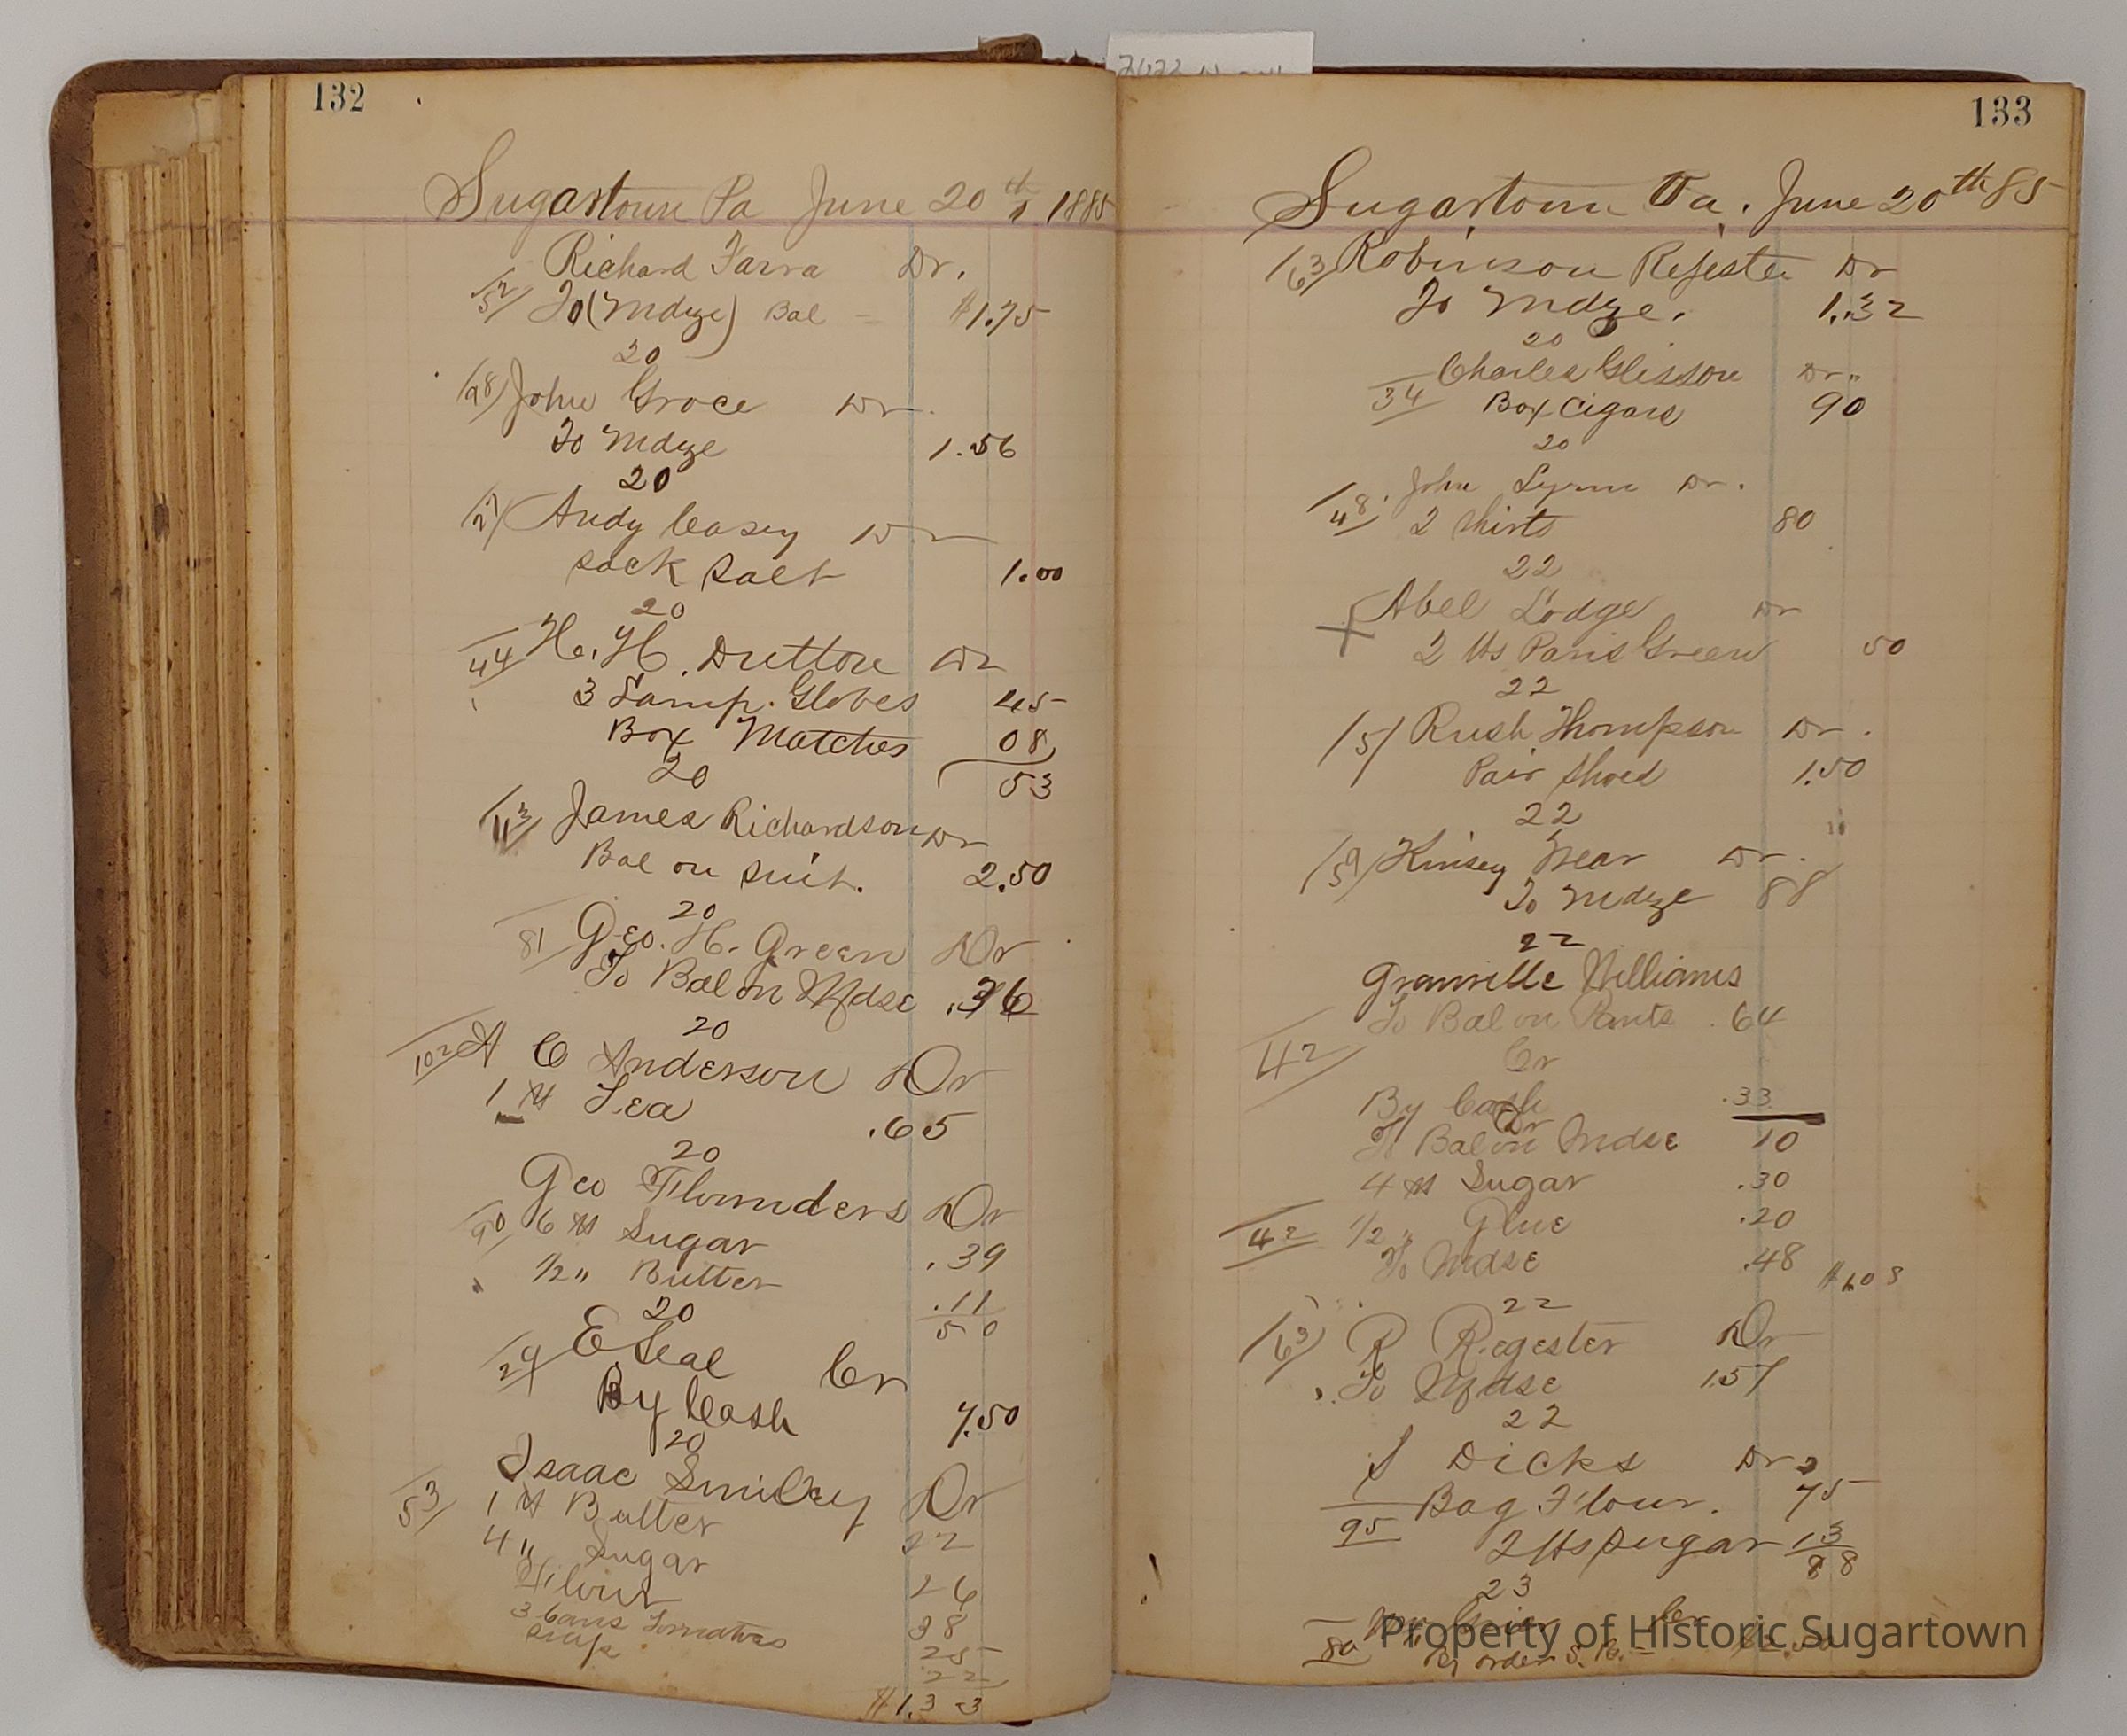 132
Sugartown Pa June 20th 1885
Richard Farra Dr.
52 To (Mdze) Bal = $1.75
20
28 John Groce Dr.
To Mdze 1.56
20
27 Andy Casey Dr
sack salt 1.00
20
44 H. H. Dutton Dr
3 Lamp Globes 45
Box Matches 08
53
20
113 James Richardson Dr
Bal on suit. 2.50
20
81 Geo. H. Green Dr
To Bal on Mdse .36
20
102 A C Anderson Dr
1 lb Tea .65
20
Geo Flounders Dr
90 6 lb Sugar .39
1/2 " Butter .11
50
20
29 E Seal Cr
By Cash 7.50
20
Isaac Smiley Dr
53 1 lb Butter 22
4 " Sugar 26
Flour 38
3 Cans Tomatoes 25
soap 22
$1.33
133
Sugartown Pa. June 20th 85
63 Robinson Regester Dr
To Mdze. 1.32
20
Charles Glisson Dr.
34 Box Cigars 90
20
John Lynn Dr.
48 2 shirts 80
22
Abel Lodge Dr
2 lbs Paris Green 50
22
51 Rush Thompson Dr.
Pair shoes 1.50
22
59 Kinsey Wear Dr.
To Mdze 88
22
Granville Williams
To Bal on Pants .64
42 Cr
By Cash .33
Dr
To Bal on Mdse 10
4 lb Sugar .30
42 1/2 " Glue .20
To Mdse .48 $1.08
22
63 R Regester Dr
To Mdse 1.57
22
J Dicks Dr
Bag Flour. 75
95 2 lbs sugar 13
88
23
80 Cr
By order S. B. =
Property of Historic Sugartown